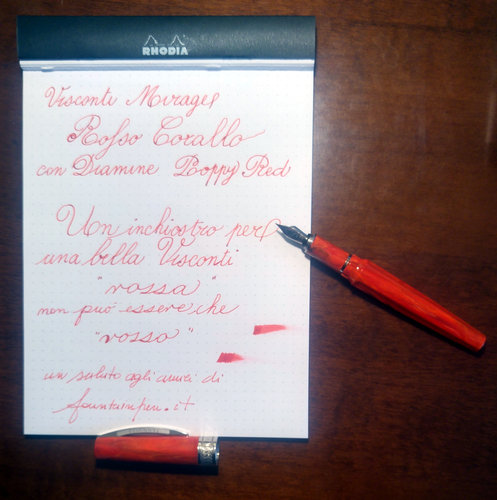 RHODIA
Visconti Mirage
Rosso Corallo
con Diamine Poppy Red
Un inchiostro per
una bella Visconti
"rossa"
non può essere che
"rosso"
un saluto agli amici di
fountainpen.it